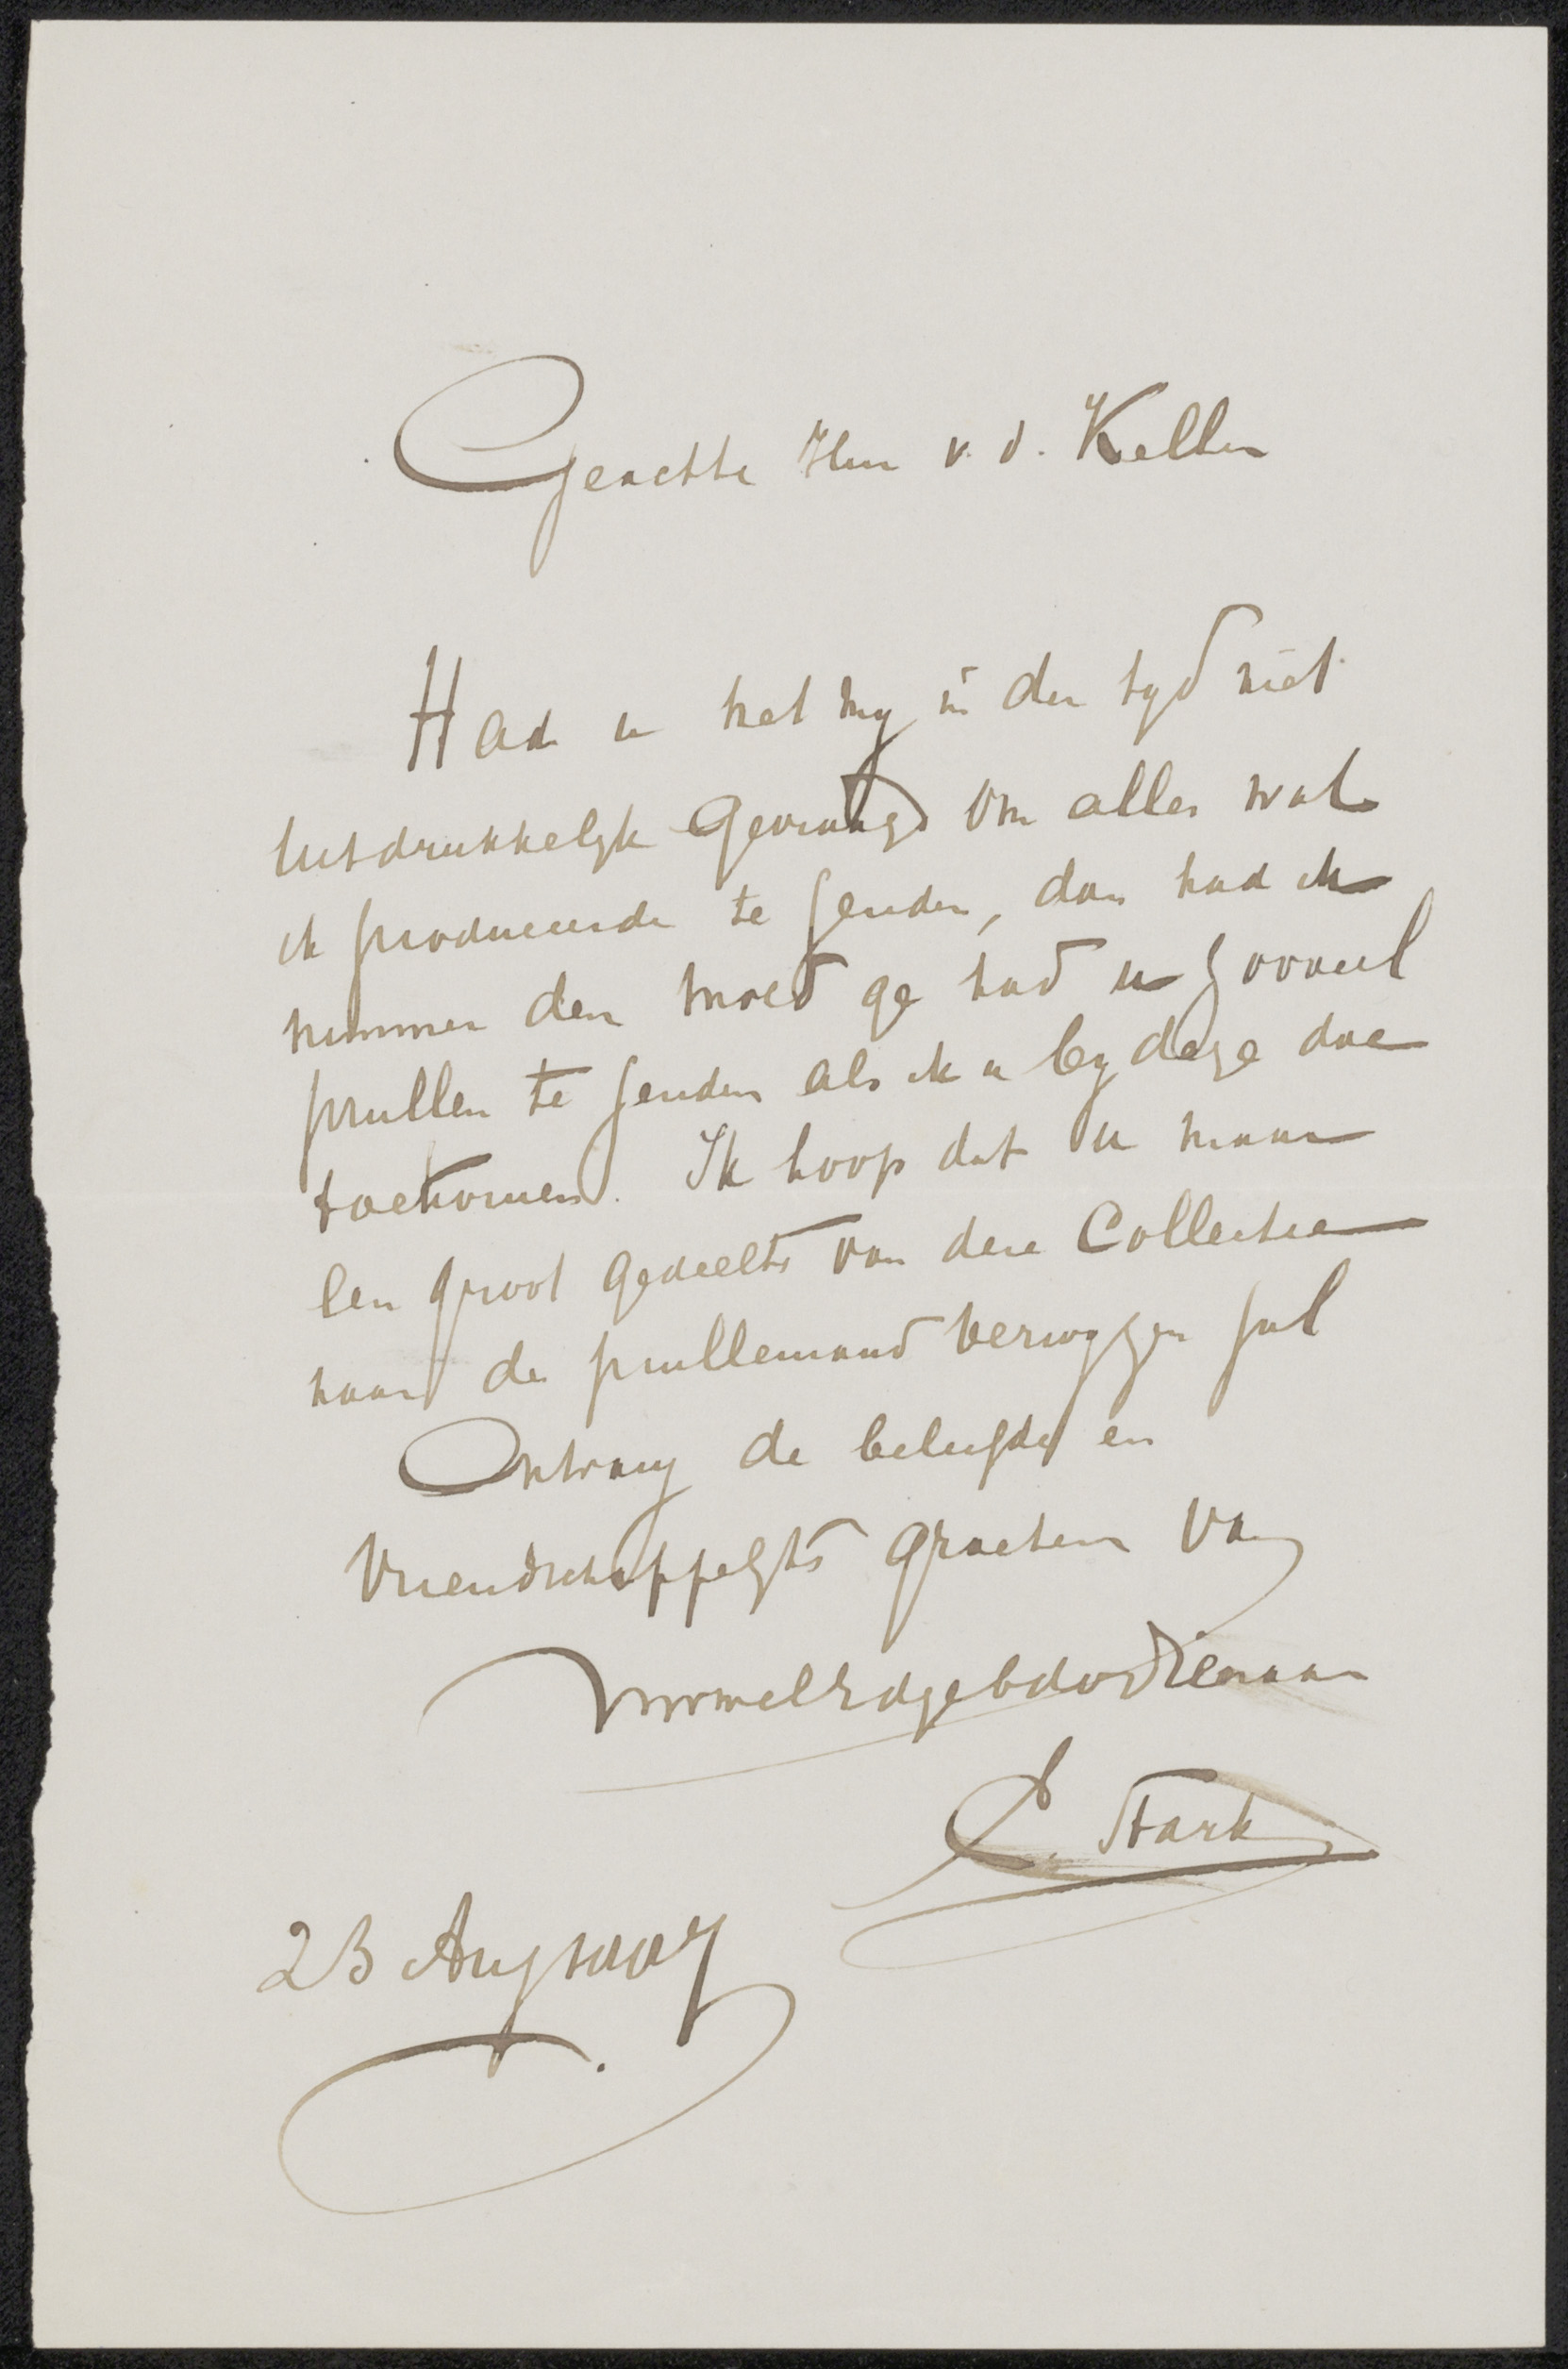 Geachte Heer v. d. Kellen
Had u het my in der tyd niet
uitdrukkelyk gevraagd om alles wat
ik produceerde te zenden, dan had ik
nimmer den moed ge had u zooveel
prullen te zenden als ik u by deze doe
toekomen. Ik hoop dat u maar
een groot gedeelte van deze Collectie
naar de prullemand verwyzen zal
Ontvang de beleefde en
vriendschappelyke groeten van
uwwelEdgeb dw Dienaar
E. Stark
23 Aug